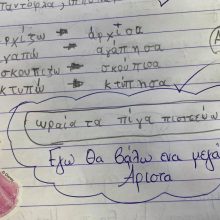 αρχίζω → αρχίσα
αγαπώ → αγάπησα
σκουπίζω → σκούπισα
κτυπώ → κτύπησα
ωραία τα πίγα πιστεύω
Εγω Θα βάλω ενα μεγά
Άριστα